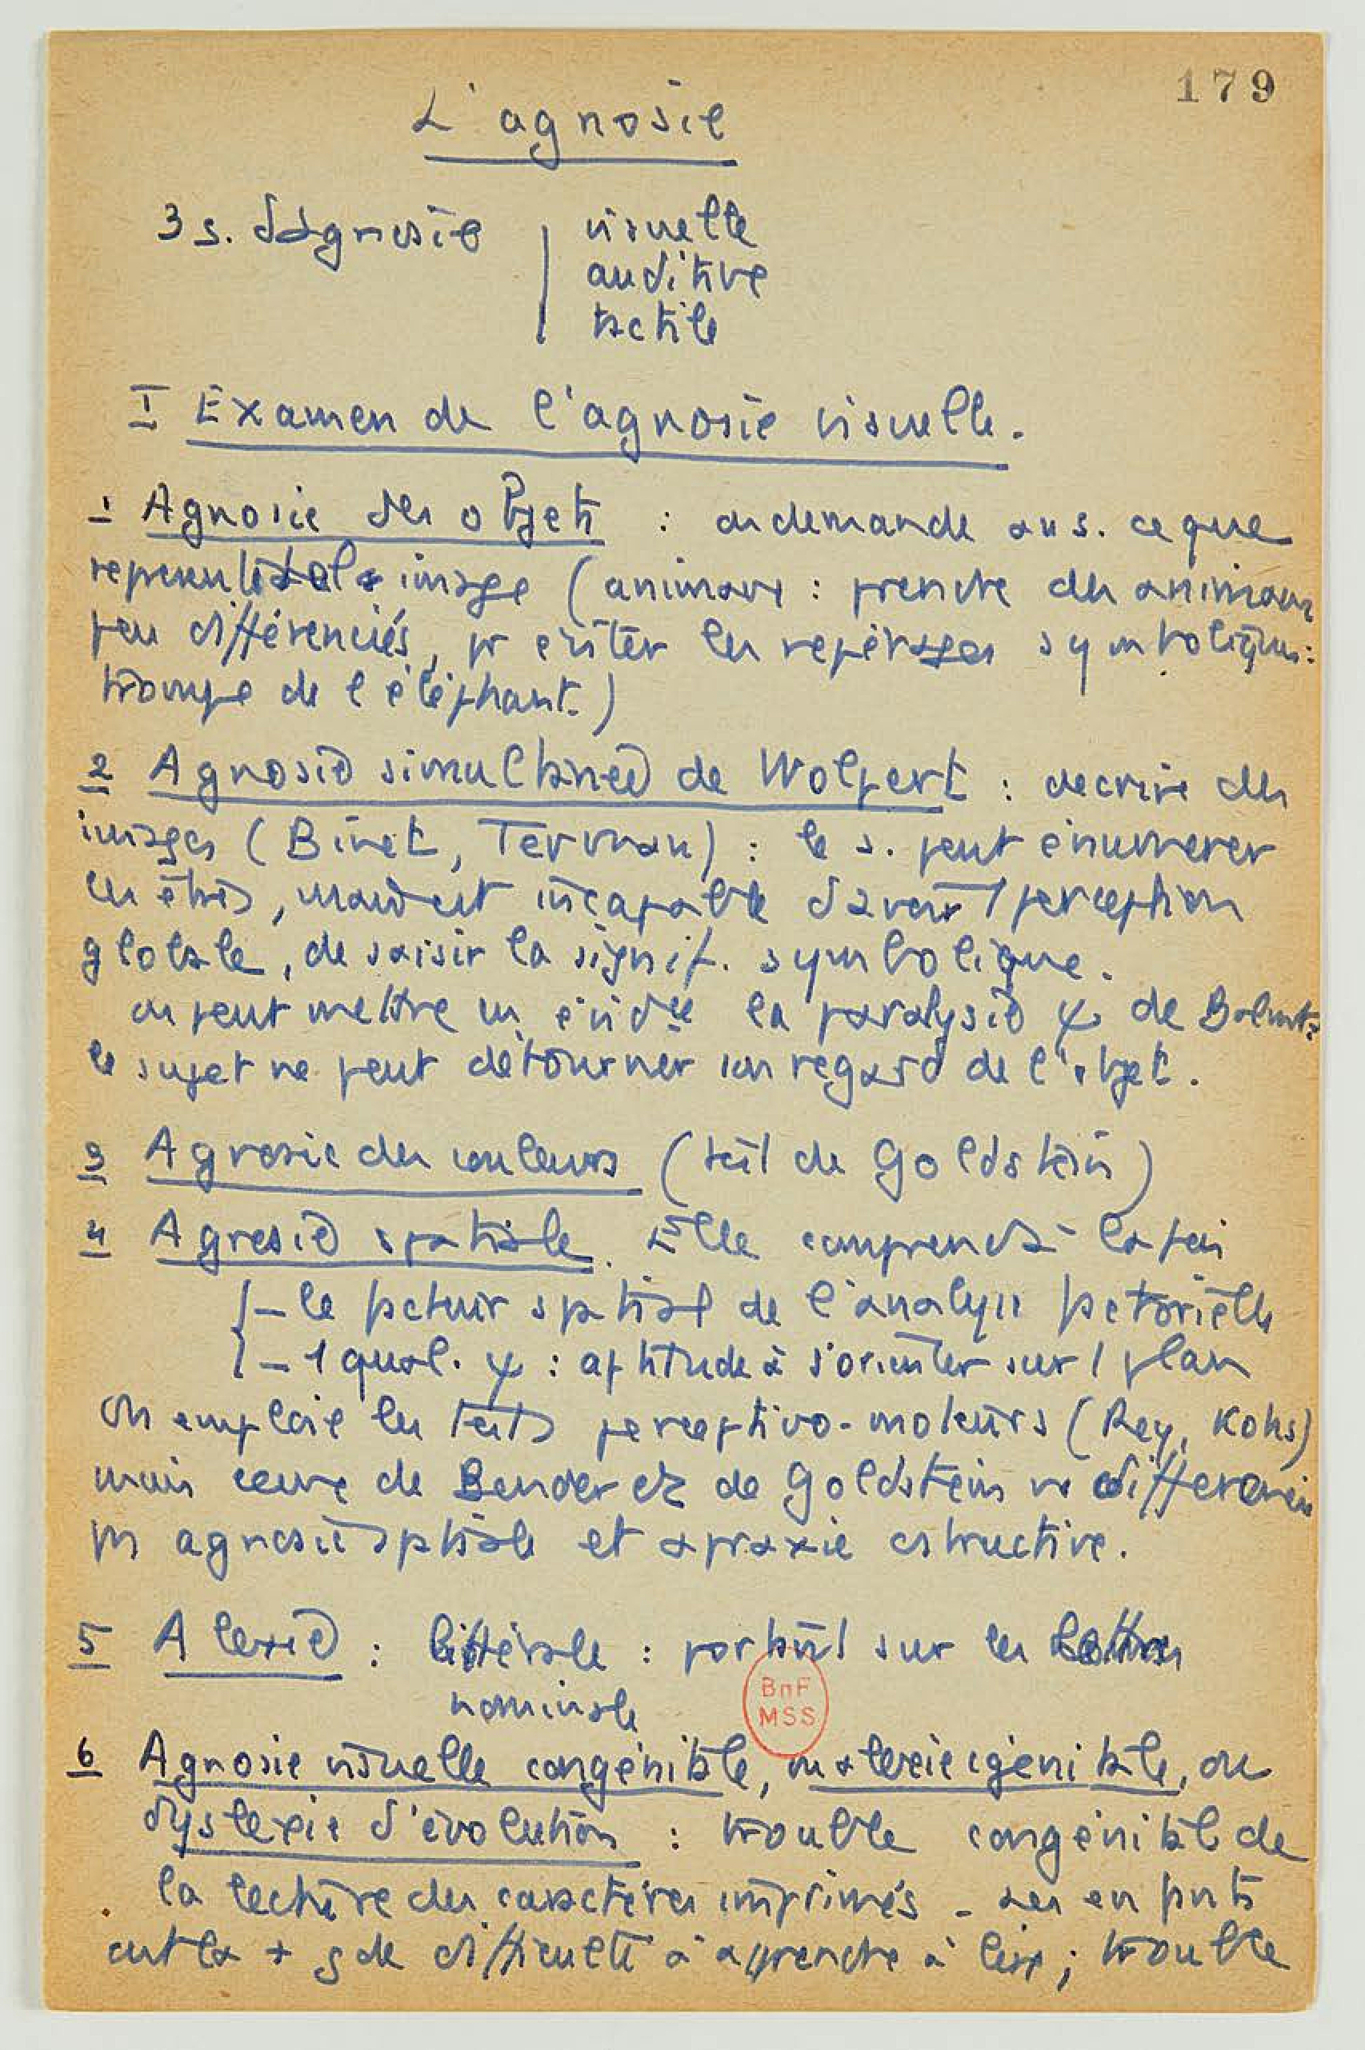 179
L'agnosie
3 s. d'agnosie | visuelle
auditive
tactile
I Examen de l'agnosie visuelle.
1 Agnosie des objets : on demande au s. ce que
représente la image (animaux : prendre des animaux
peu différenciés, pr éviter les repérages symboliques :
trompe de l'éléphant.)
2 Agnosie simultanée de Wolpert : décrire des
images (Binet, Terman) : le s. peut énumérer
les êtres, mais est incapable d'avoir 1 perception
globale, de saisir la signif. symbolique.
on peut mettre en évidce la paralysie ψ de Balint :
le sujet ne peut détourner son regard de l'objet.
3 Agnosie des couleurs (test de Goldstein)
4 Agnosie spatiale. Elle comprend à la fois
- le facteur spatial de l'analyse factorielle
- 1 qual. ψ : aptitude à s'orienter sur 1 plan
On emploie les tests perceptivo-moteurs (Rey, Kohs)
mais ceux de Bender et de Goldstein ne différencient
pas agnosie spatiale et apraxie cstructive.
5 Alexie : littérale : portant sur les lettres
nominale
BnF
MSS
6 Agnosie visuelle congénitale, ou alexie cgénitale, ou
dyslexie d'évolution : trouble congénital de
la lecture des caractères imprimés - les enfants
ont la + gde difficulté à apprendre à lire ; trouble